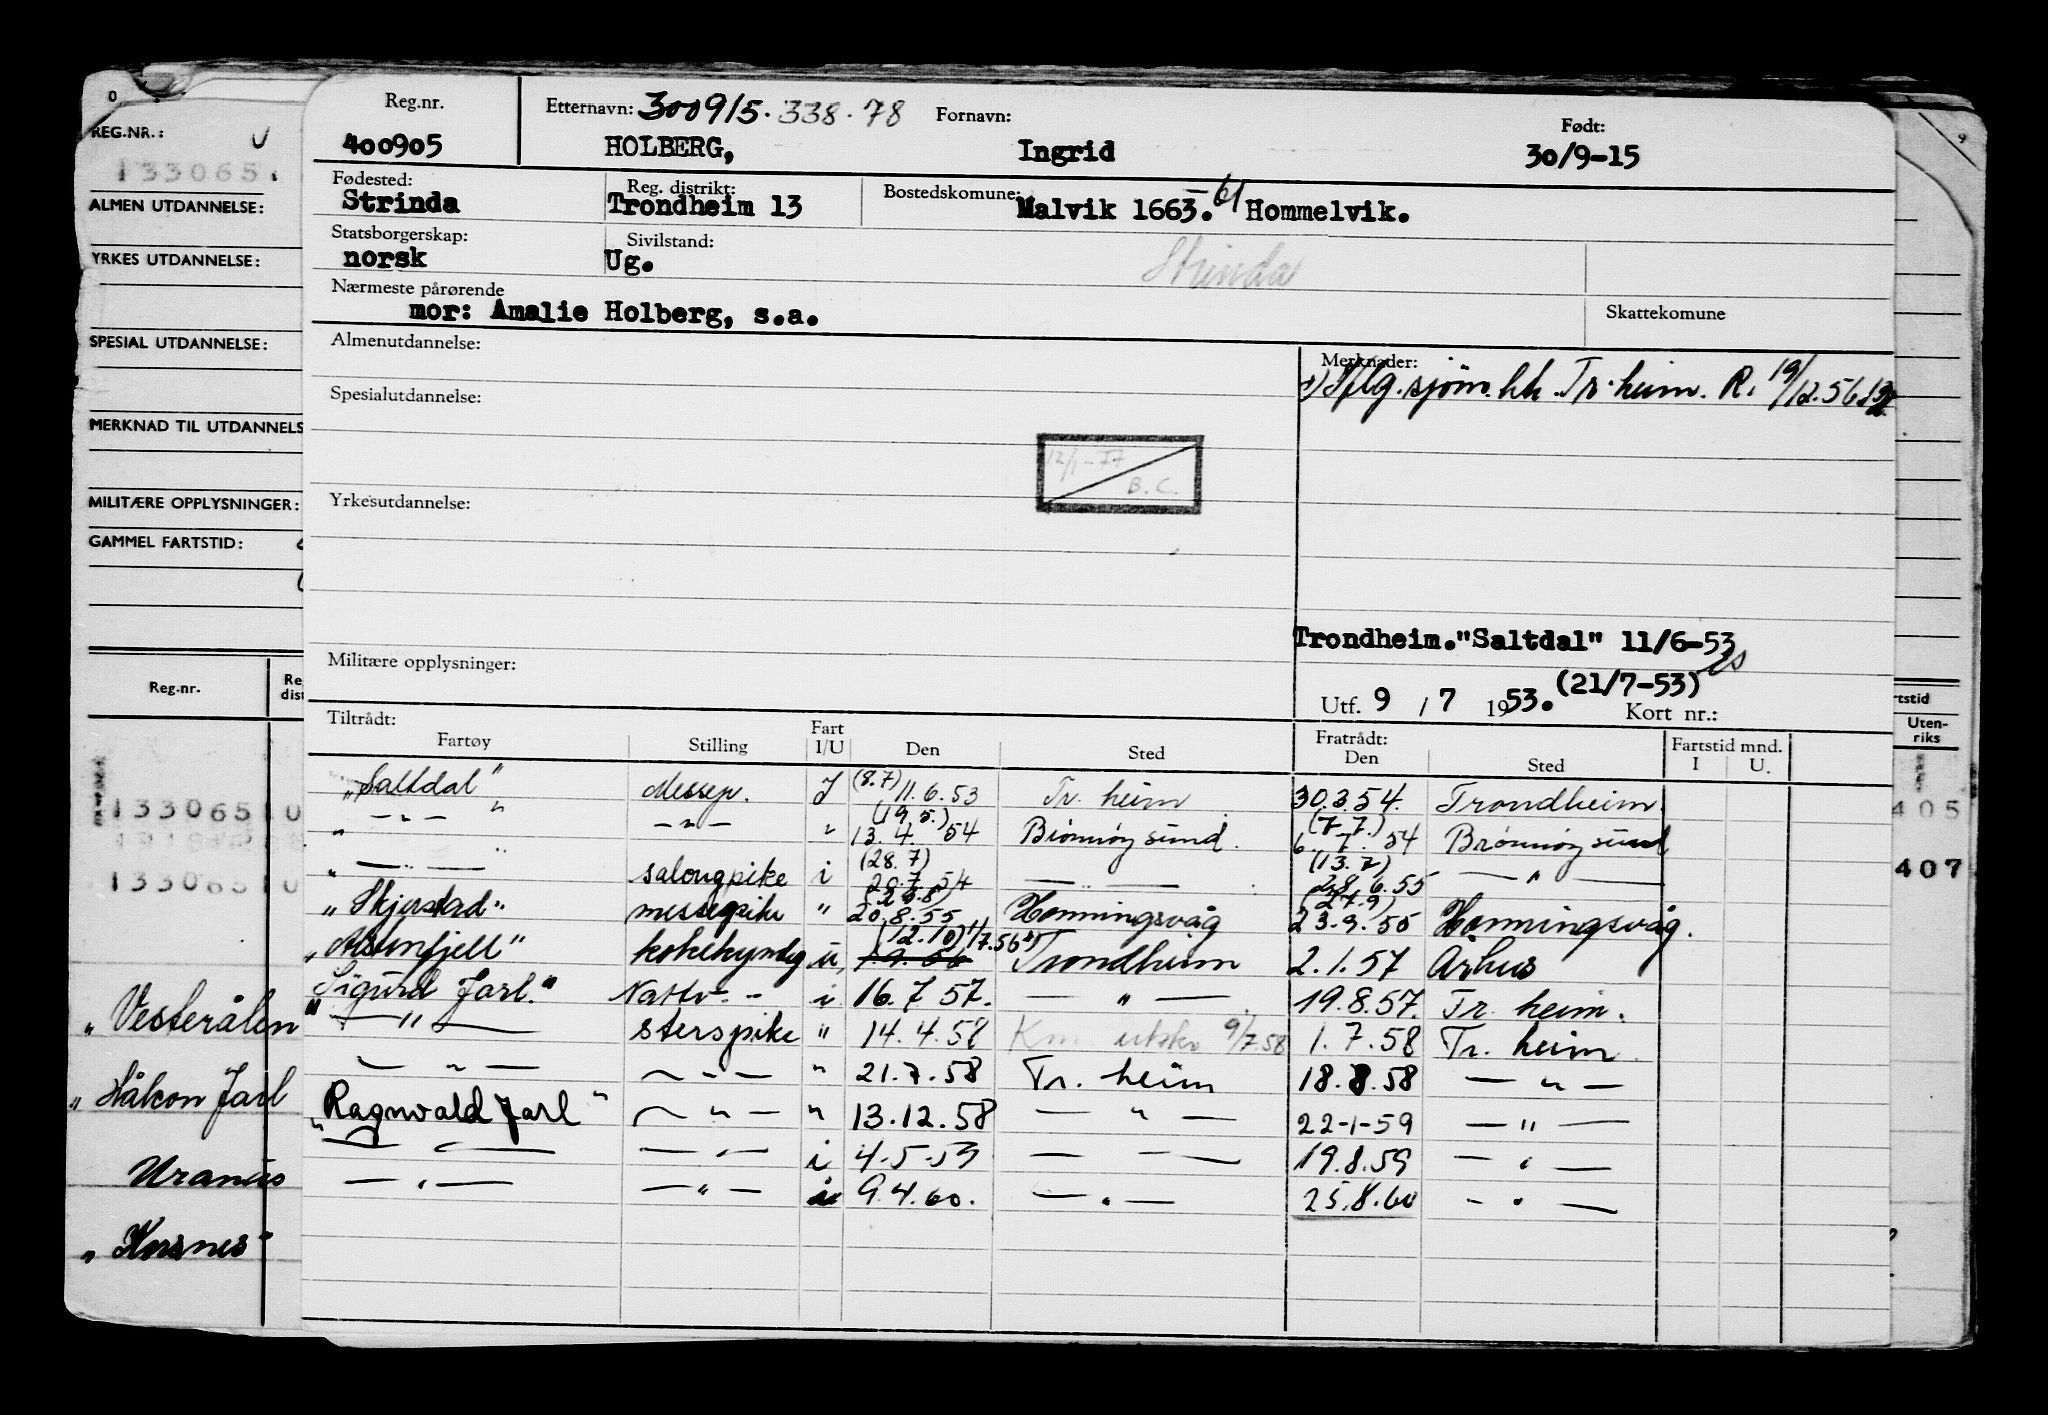 REG.NR.: U
133065.
ALMEN UTDANNELSE:
YRKES UTDANNELSE:
SPESIAL UTDANNELSE:
MERKNAD TIL UTDANNELS
MILITÆRE OPPLYSNINGER:
GAMMEL FARTSTID:
Reg.nr. Re dist
133065 U
133065 U
„Vesterålen
„Håkon Jarl
Uranus
„Korsnes"
Reg.nr. Etternavn: 300915.338.78 Fornavn: Født:
400905 HOLBERG, Ingrid 30/9-15
Fødested: Reg. distrikt: Bostedskomune:
Strinda Trondheim 13 Malvik 1663. 61 Hommelvik.
Statsborgerskap: Sivilstand:
norsk Ug. Strinda
Nærmeste pårørende Skattekomune
mor: Amalie Holberg, s.a.
Almenutdannelse: Merknader:
Tr.heim. R. 19/12.56
Spesialutdannelse:
12/1-77
B.C.
Yrkesutdannelse:
Trondheim."Saltdal" 11/6-53
Militære opplysninger:
(21/7-53)
Utf. 9 / 7 1953. Kort nr.:
Tiltrådt: Fratrådt: Fartstid mnd.
Fartøy Stilling Fart I/U Den Sted Den Sted I U.
„Saltdal" Messep. I (8.7) 11.6.53 Tr. heim 30.3.54. Trondheim.
„ —"— " —"— " (19.5.) 13.4.54 Brønnøysund. (7.7.) 6.7.54 Brønnøysund
„ —"— " salongpike i (28.7) 20.7.54 —"— (13.7) 28.6.55 —"—
„Skjerstad" messepike " (26.8) 20.8.55 Honningsvåg (27.9) 23.9.55 Honningsvåg.
„ u (12.10) 1/7.56 Trondheim 2.1.57 Århus
"Sigurd Jarl." Nattv.- i 16.7.57. —"— 19.8.57. Tr. heim.
—"— sterspike " 14.4.58 9/7.58 1.7.58 Tr. heim.
—"— —"— " 21.7.58 Tr. heim 18.8.58 —"—
„Ragnvald Jarl" —"— " 13.12.58 —"— 22-1-59 —"—
—"— —"— i 4-5-59 —"— 19.8.59 —"—
—"— —"— 9.4.60. —"— 25.8.60 —"—
rtstid
Uten-
riks
405
407